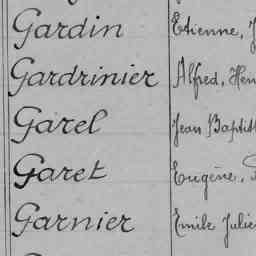 Gardin Etienne, J
Gardrinier Alfred, Hen
Garel Jean Baptist
Garet Eugène,
Garnier Emile Julie